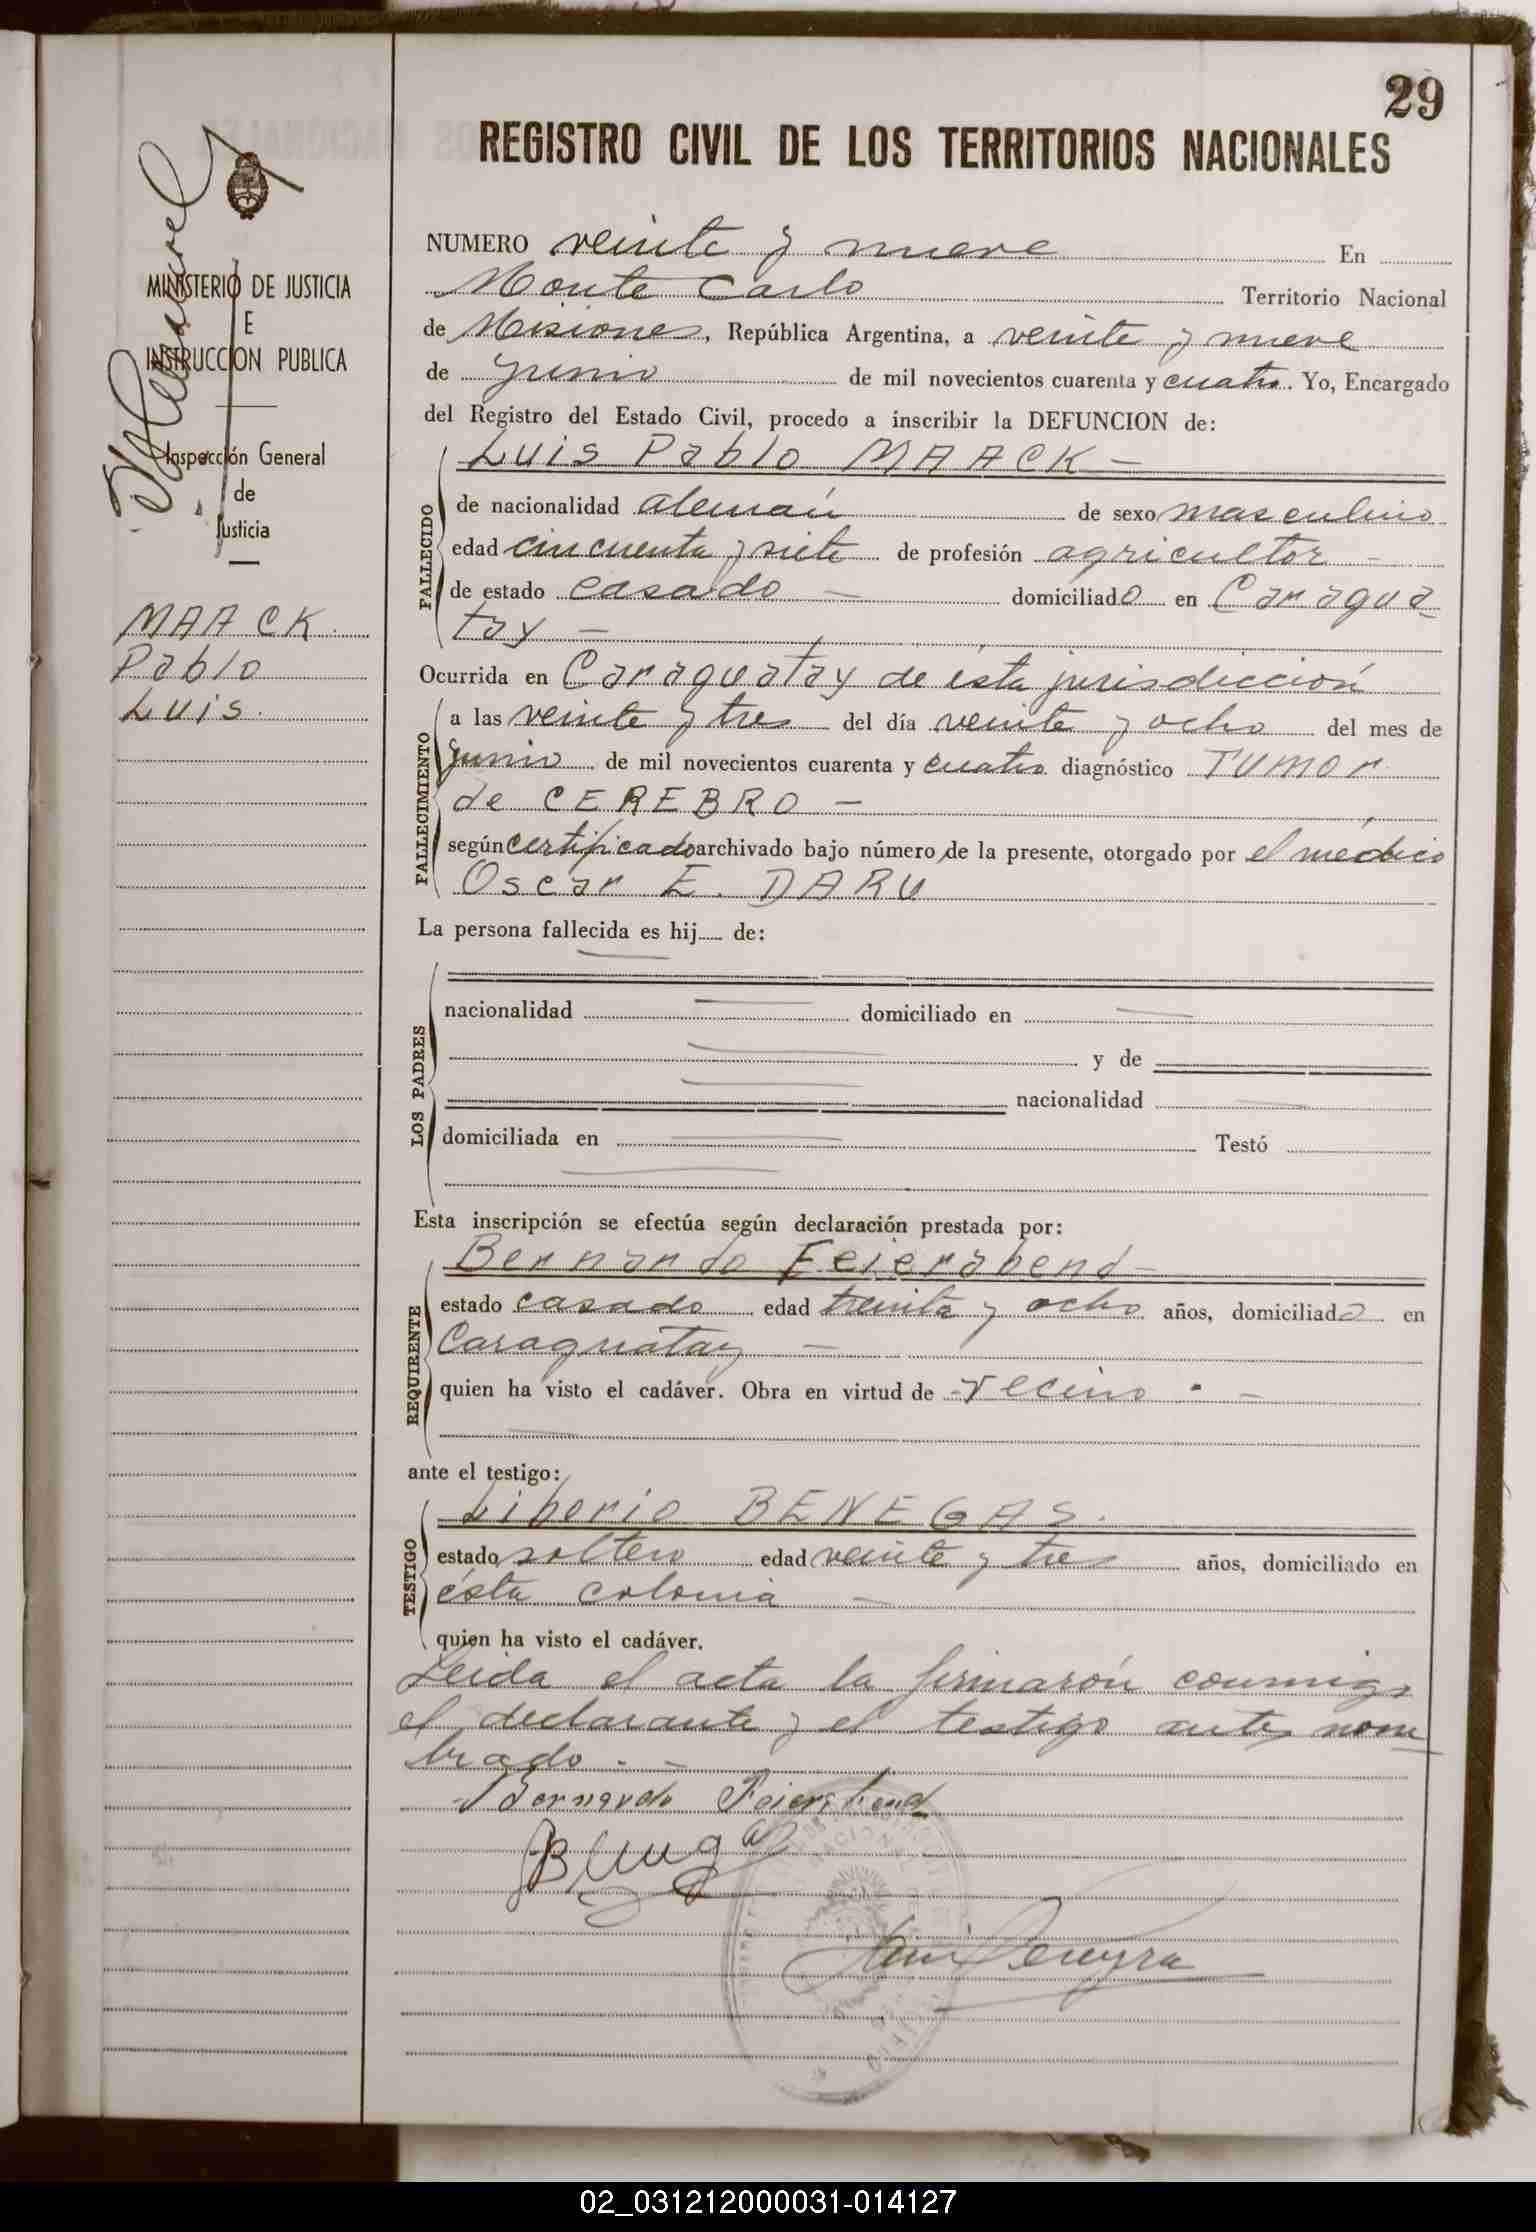 29
REGISTRO CIVIL DE LOS TERRITORIOS NACIONALES
MINISTERIO DE JUSTICIA
E
INSTRUCCION PUBLICA
Inspección General
de
Justicia
MAACK
Pablo
Luis.
NUMERO veinte y nueve En
Monte Carlo Territorio Nacional
de Misiones, República Argentina, a veinte y nueve
de Junio de mil novecientos cuarenta y cuatro. Yo, Encargado
del Registro del Estado Civil, procedo a inscribir la DEFUNCION de:
Luis Pablo MAACK —
FALLECIDO
de nacionalidad alemán de sexo masculino
edad cincuenta y siete de profesión agricultor —
de estado casado — domiciliado en Caragua-
tay —
Ocurrida en Caraguatay de ésta jurisdicción
FALLECIMIENTO
a las veinte y tres del día veinte y ocho del mes de
junio de mil novecientos cuarenta y cuatro diagnóstico TUMOR
de CEREBRO —
según certificado archivado bajo número de la presente, otorgado por el médico
Oscar E. DARU
La persona fallecida es hij de:
LOS PADRES
nacionalidad domiciliado en
y de
nacionalidad
domiciliada en Testó
Esta inscripción se efectúa según declaración prestada por:
Bernardo Feierabend —
REQUIRENTE
estado casado edad treinta y ocho años, domiciliado en
Caraguatay —
quien ha visto el cadáver. Obra en virtud de vecino . —
ante el testigo:
Liberio BENEGAS.
TESTIGO
estado soltero edad veinte y tres años, domiciliado en
ésta colonia —
quien ha visto el cadáver.
Leida el acta la firmarón conmigo
el declarante y el testigo antes nom-
brado. —
Bernardo Feierabend
02_031212000031-014127